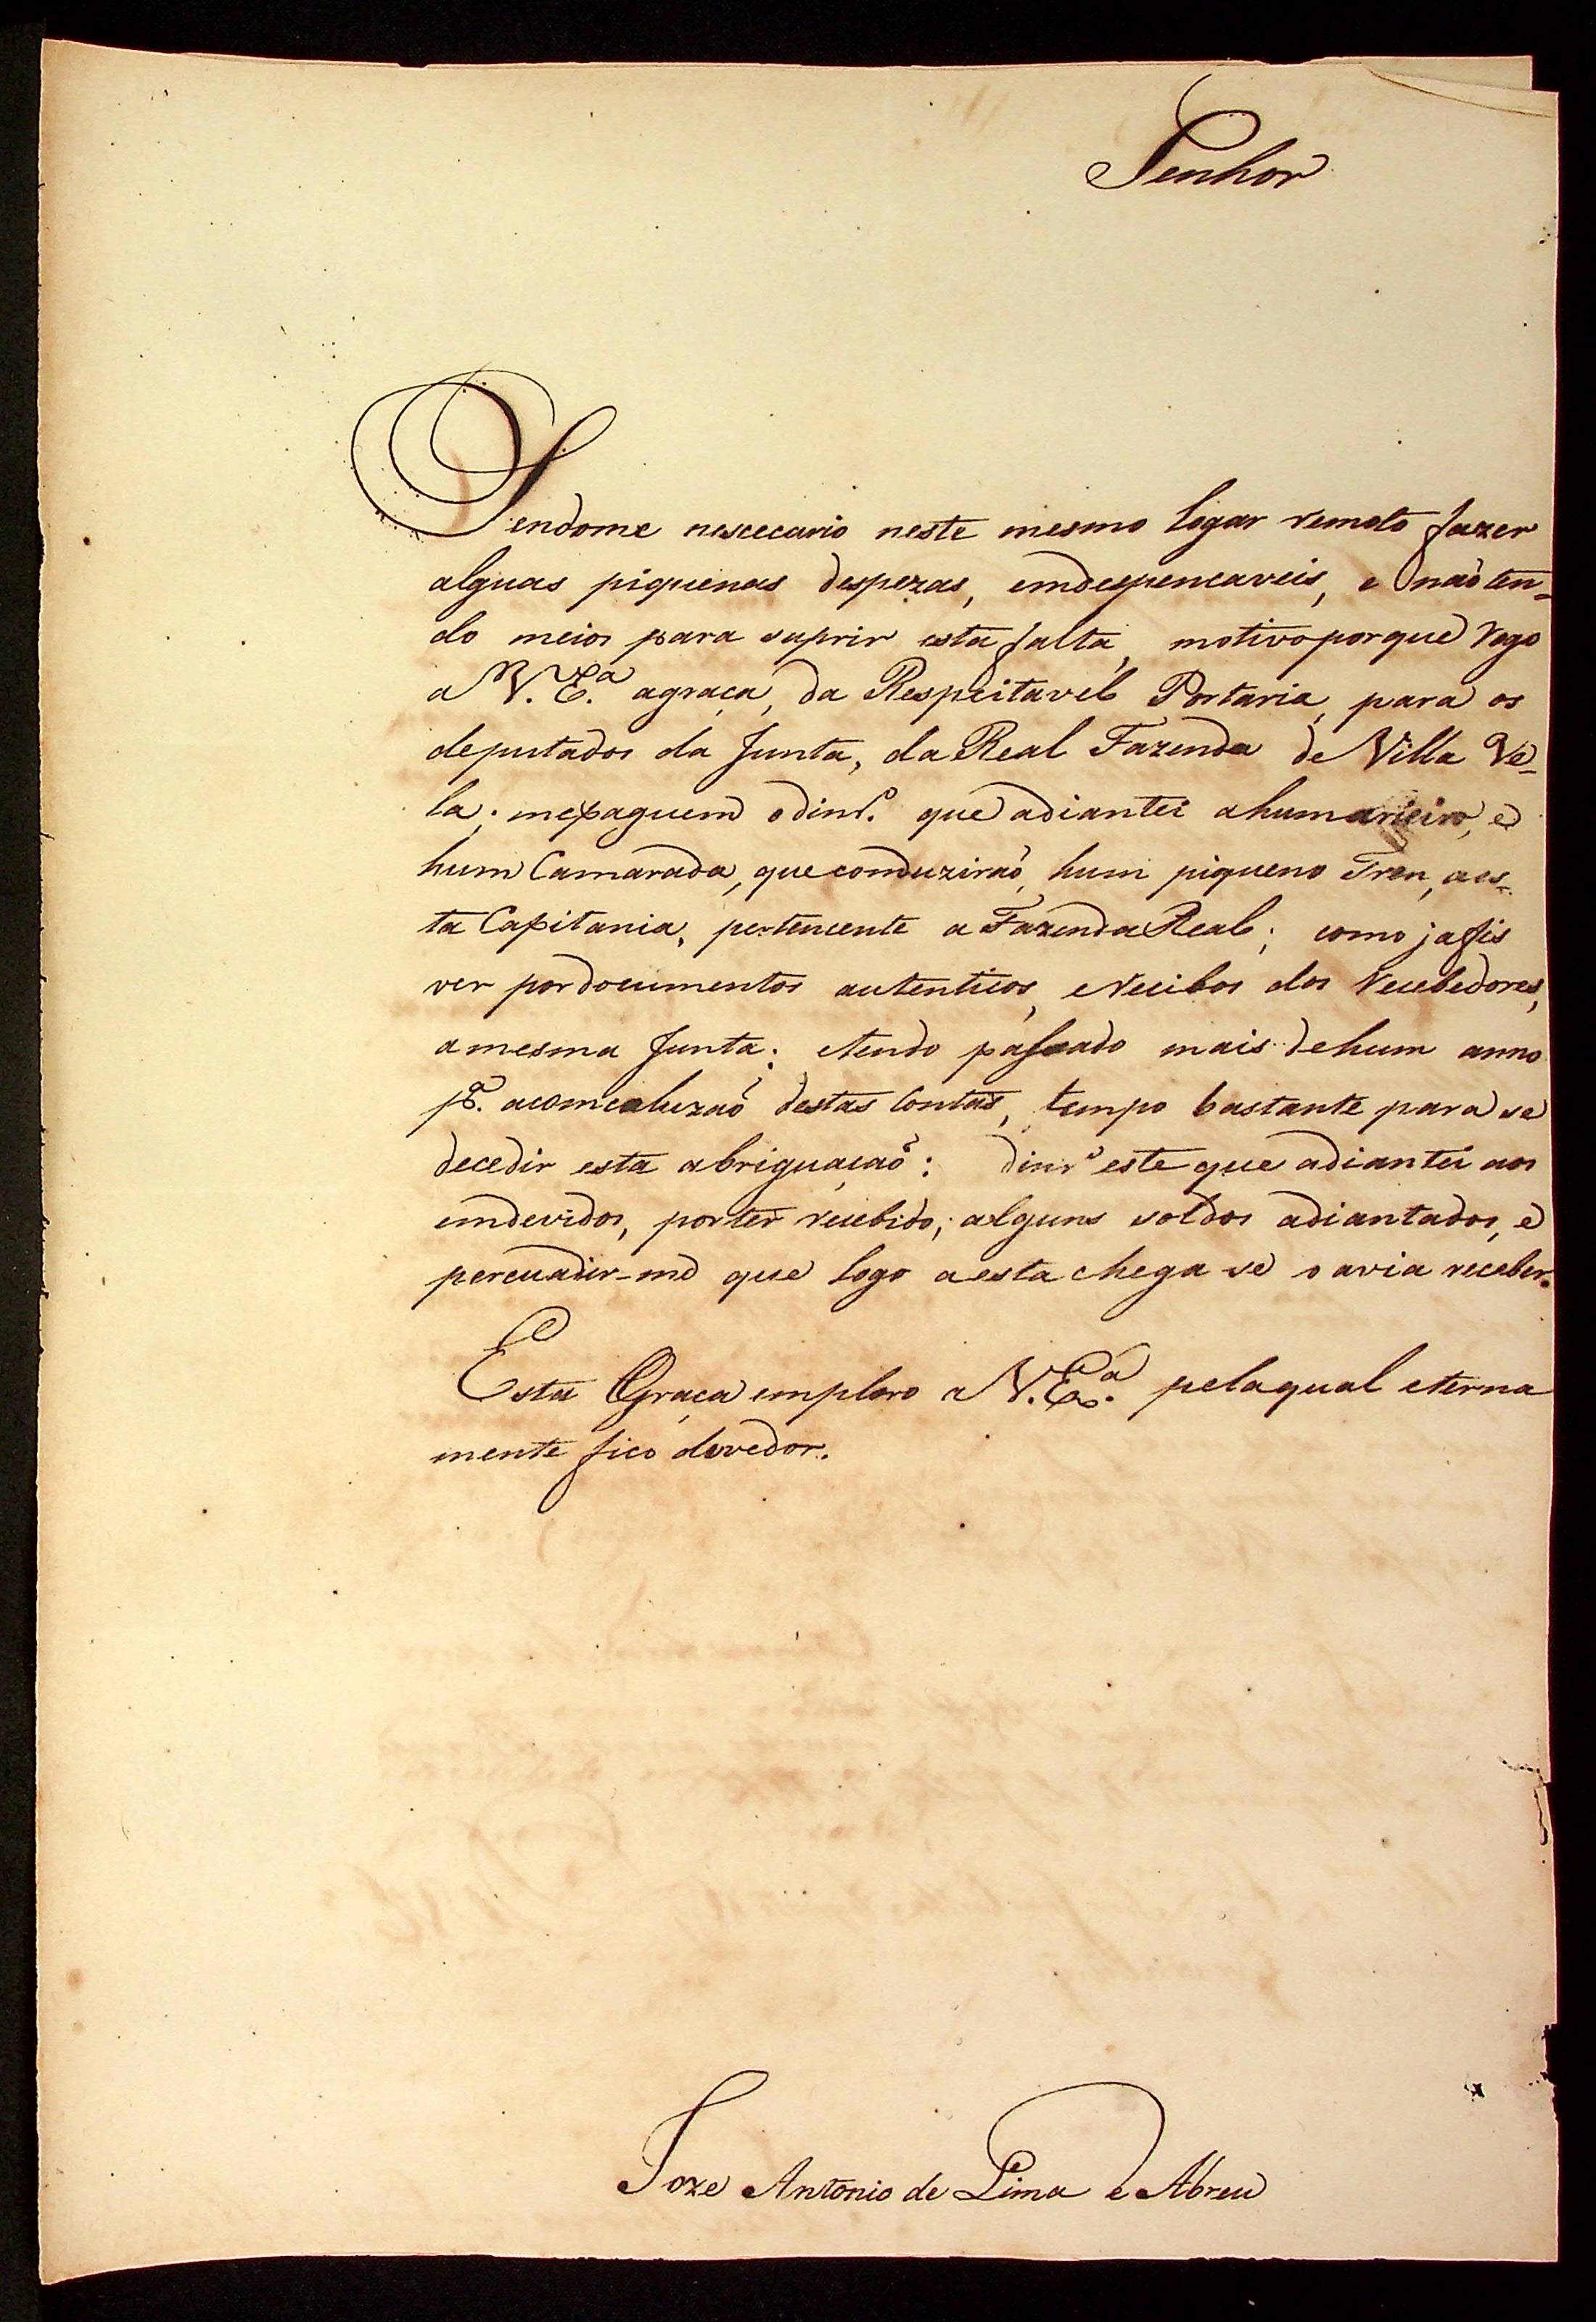 Senhor
Sendome nescecario neste mesmo logar remoto fazer
alguas piquenas despezas, emdespencaveis, e não ten=
do meios para suprir esta falta, motivo porque rogo
a V. Ex.ª agraça, da Respeitavel Portaria, para os
deputados da Junta, da Real Fazenda de Villa Be=
la; me paguem o dinr.º que adiantei a hum arieiro, e
hum Camarada, que conduzirão, hum piqueno Tren, aes=
ta Capitania, pertencente a Fazenda Real; como ja fis
ver por documentos autenticos, e recibos dos recebedores,
a mesma Junta: e tendo passado mais de hum anno
p.ª acomcluzaõ destas Contas, tempo bastante para se
decedir esta abriguação: dinr.º este que adiantei aos
emdevidos, por ter recebido; alguns soldos adiantados, e
percuadir-me que logo a esta chega se o avia receber.
Esta Graça emploro a V. Ex.ª pela qual eterna
mente fico devedor.
Joze Antonio de Lima e Abreu